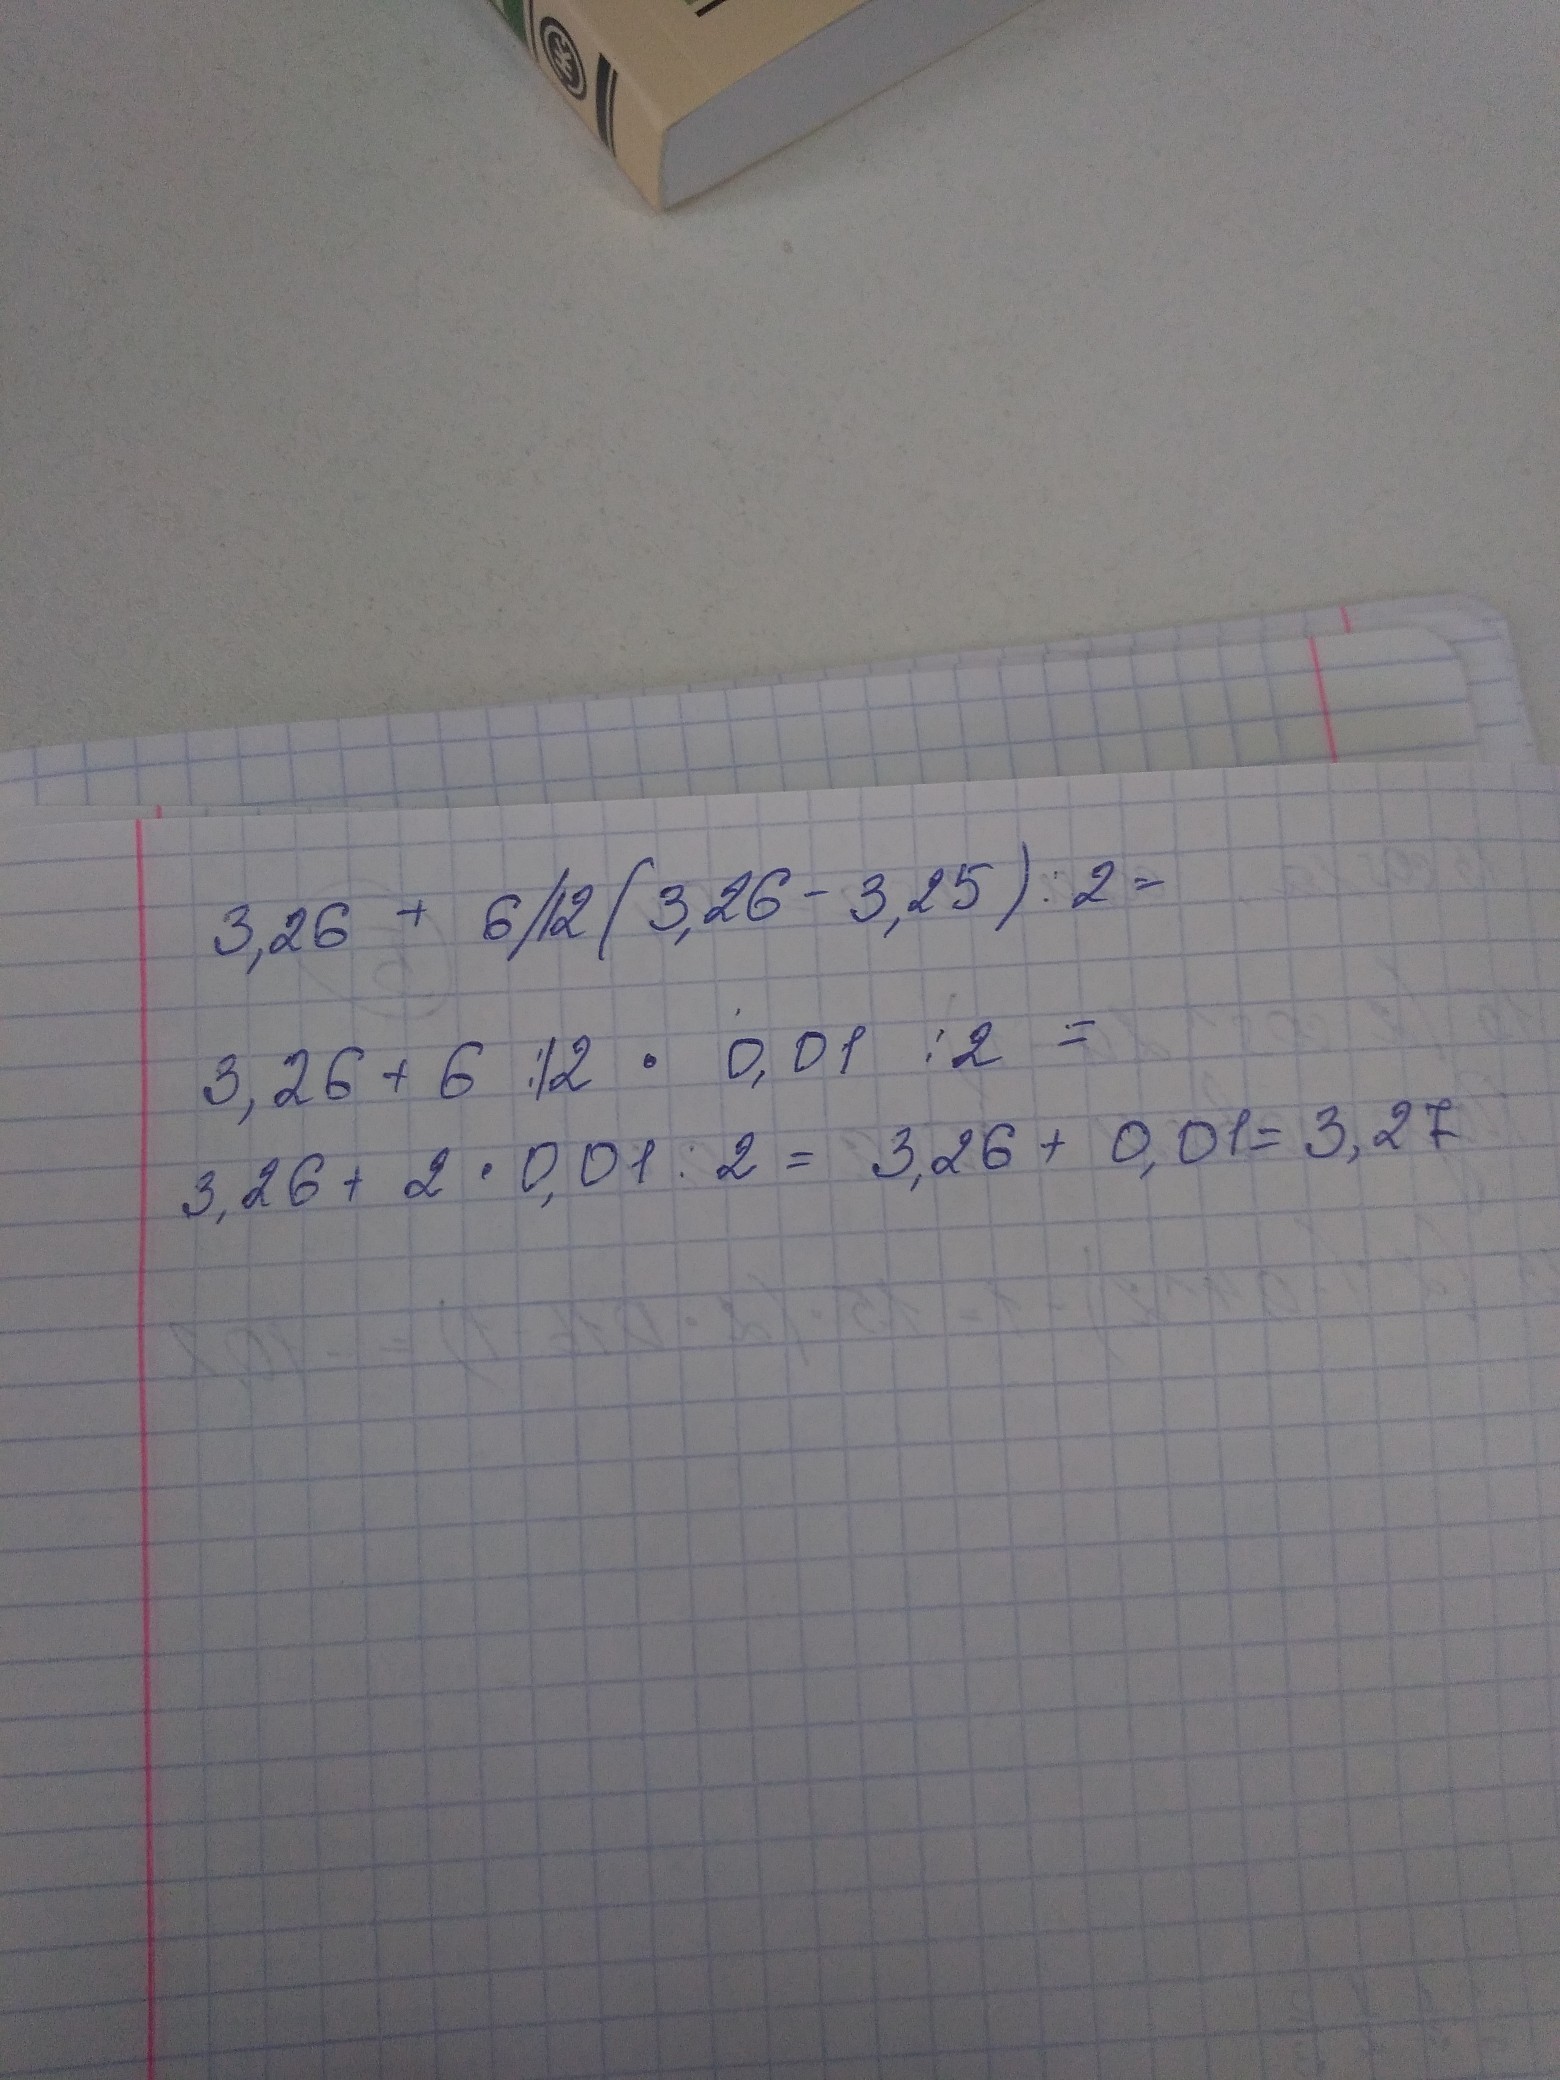 3,26 + 6/12(3,26-3,25):2=
3,26+6:12 • 0,01 :2 =
3,26+ 2 • 0,01:2= 3,26+ 0,01= 3,27